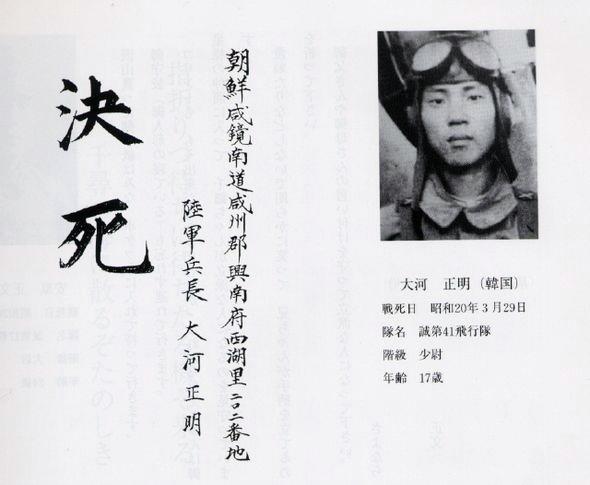 大河　正明（韓国）
戦死日　昭和20年3月29日
隊名　誠第41飛行隊
階級　少尉
年齢　17歳
朝鮮咸鏡南道咸州郡興南府西湖里二〇二番地
陸軍兵長　大河正明
決死